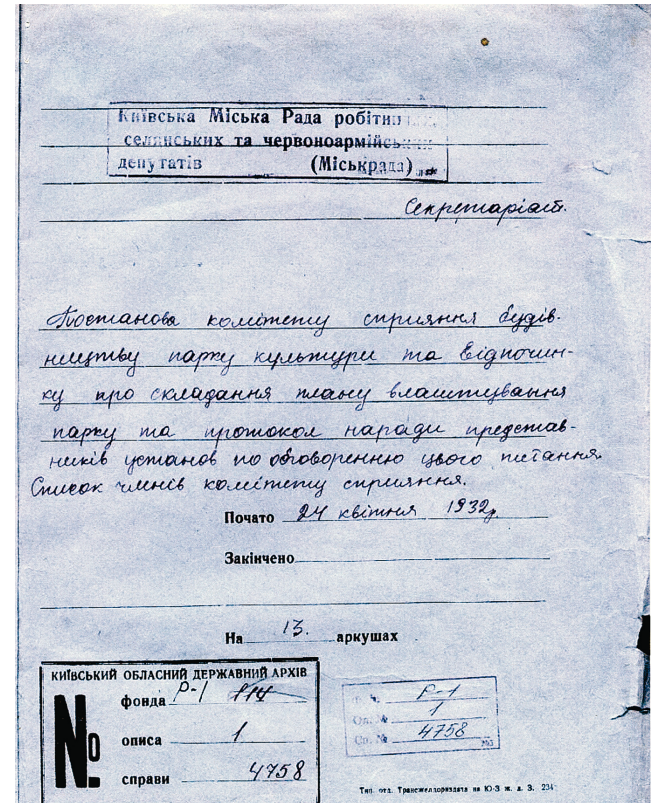 Київська Міська Рада
селянських та червоноармійських
депутатів (Міськрада)
Секретаріат.
Постанова комітету сприяння будів-
ництву парку культури та відпочин-
ку про складання плану влаштування
парку та протокол наради представ-
ників установ по обговоренню цього питання.
Список членів комітету сприяння.
Почато 24 квітня 1932р.
Закінчено
На 13. аркушах
КИЇВСЬКИЙ ОБЛАСНИЙ ДЕРЖАВНИЙ АРХІВ
№
фонда Р-1 114
описа 1
справи 4758
Ф. № Р-1
Оп. № 1
Сп. № 4758
Тип. отд. Трансжелдориздата на Ю-З ж. д. З. 234